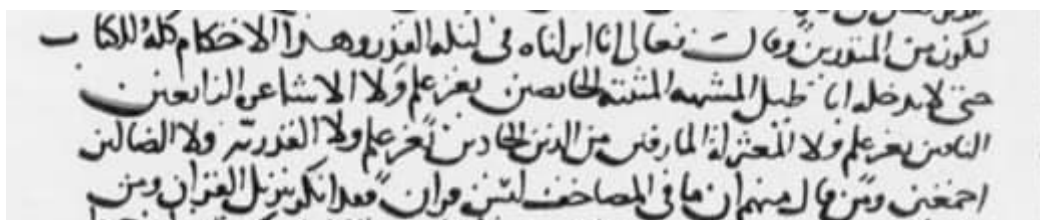 لتكون من المنذرين وقال تعالى انا انزلناه في ليلة القدر وهذا الاحكام كله للكتاب
حتى لا يدخله اباطيل المشبهه المثبته الخايضين بغير علم ولا الاشاعره النابغين
التابعين بغير علم ولا المعتزلة المارقين من الدين الحادين بغير علم ولا القدريه ولا الضالين
اجمعين ومن قال منهم ان ما في المصاحف ليس قران فقد انكر تنزيل القران ومن